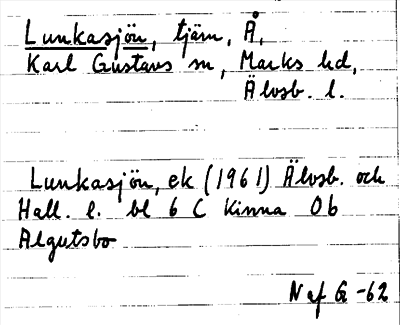 Lunkasjön, tjärn, Å,
Karl Gustavs sn, Marks hd,
Älvsb. l.
Lunkasjön, ek (1961) Älvsb. och
Hall. l. bl 6 C Kinna 0b
Algutsbo
N af G -62